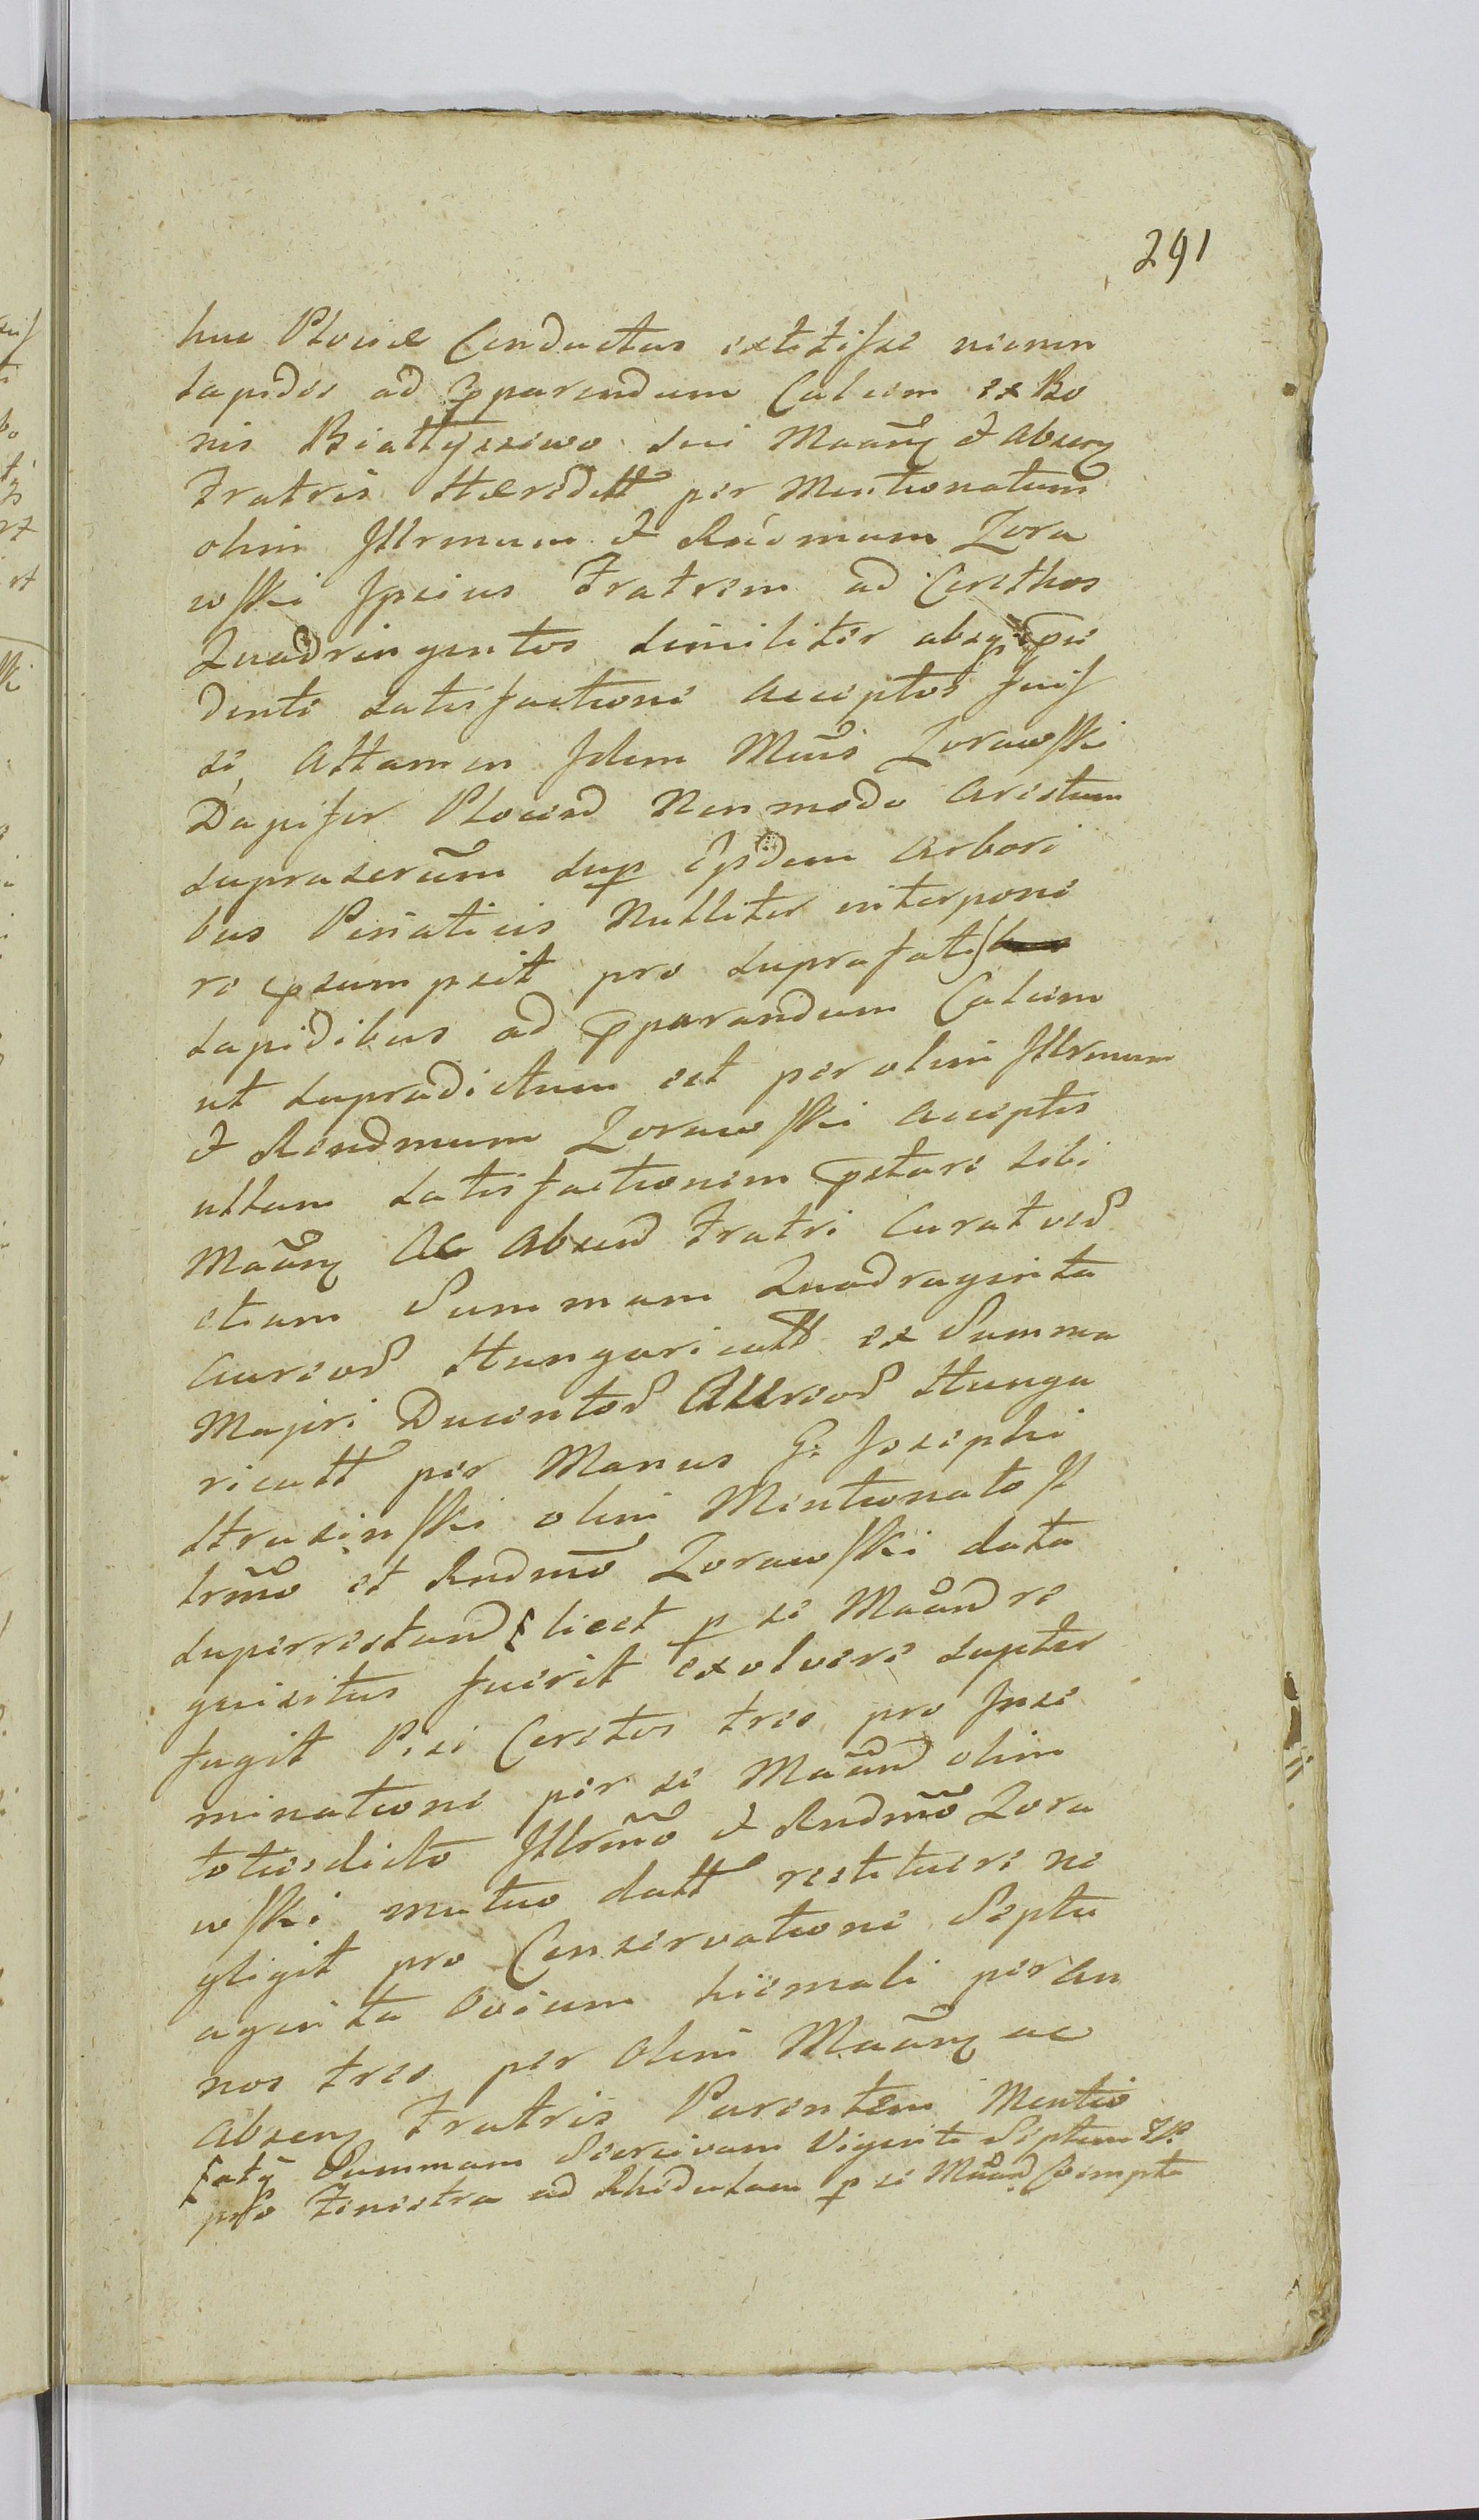 291
huc Plociæ Conductus extitisse nienon
lapides ad pparandum Calcem ex Bo
nis Białłyszewo sui Maanˢ & Absenˢ
Fratris Hæreditt per Mentionatum
olim Jllrmum & Rndmum Zora
wski Jpsius Fratrem ad Corethos
Quadringentos similiter absq
denti satisfactione acceptos fuis
se, Attamen Jdem Mcus Zorawski
Dapifer Plocens Nonmodo Arestum
supraserum sup Jpsdem Arbori
bus Nulliter interpone
re psumpsit pro suprafatis
lapidibus ad pparandum Calcem
ut supradictum est per olim Jllrmum
& Rendmum Zorawski acceptis
ullam satisfactionem pstare sibi
Maanˢ Ac Absen Fratri Curat verˢ
etiam Summam Quadraginta
Aureorˢ Hungaricall ex Summa
Majori Ducentorˢ Aureorˢ Hunga
ricall per Manus G: Josephi
Straszinski olim Mentionato Jl
lrmo et Rndmo Zorawski data
superrestan licet p se Maand re
quisitus fuerit exolvere supter
fugit Pisi Coretos tres pro Jnse
minatione per se Maand olim
totiesdicto Jllrmo & Rndmo Zora
wski mutuo datt restituere ne
gligit pro Conservatione Septu
aginta Ovium hiemali per an
nos tres per olim Maanˢ ac
Absenˢ Fratris Parentem Mentio
Summam Viginti Septem
pro Fenestra ad Rhedulam p se Maand Coempta